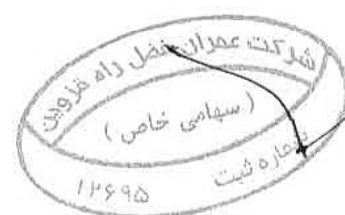 شرکت عمران فضل راه قزوین
(سهامی خاص)
شماره ثبت ۱۲۶۹۵